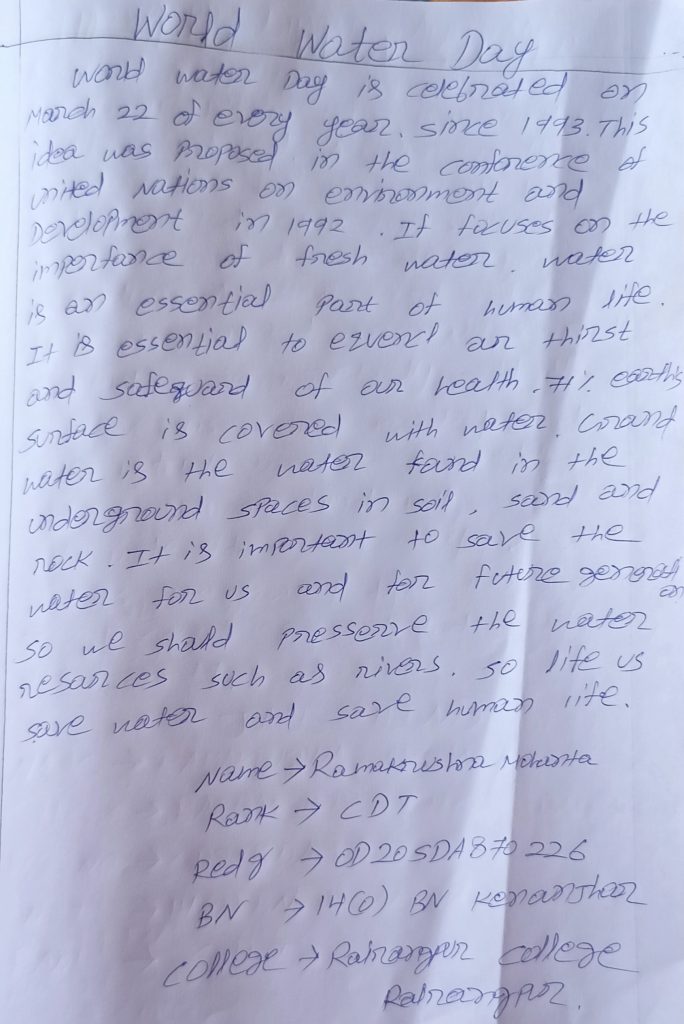 World Water Day
World water Day is celebrated on
March 22 of every year. since 1993. This
idea was proposed in the conference of
united Nations on environment and
Development in 1992. It focuses on the
importance of fresh water. water
is an essential part of human life.
It is essential to our thirst
and safeguard of our health. 71% earth's
surface is covered with water. Ground
water is the water found in the
underground spaces in soil, sand and
rock. It is important to save the
water for us and for future generation
so we should presserve the water
resources such as rivers. so life us
save water and save human life.
Name → Ramakrushna Mohanta
Rank → CDT
Redg → OD20SDA870226
BN → 14(O) BN Keonjhar
College → Rairangpur college
Rairangpur.